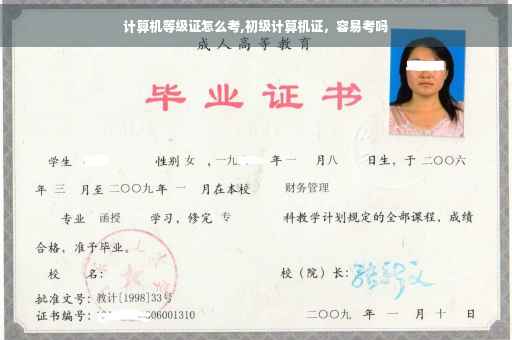 计算机等级证怎么考,初级计算机证，容易考吗
成人高等教育
毕业证书
学生 性别 女 ，一九 年 一 月 八 日生，于 二〇〇六
年 三 月至 二〇〇九 年 一 月在本校 财务管理
专业 函授 学习，修完 专 科教学计划规定的全部课程，成绩
合格，准予毕业。
校 名： 校（院）长：
批准文号：教计[1998]33号
证书编号： 06001310 二〇〇九 年 一 月 十 日